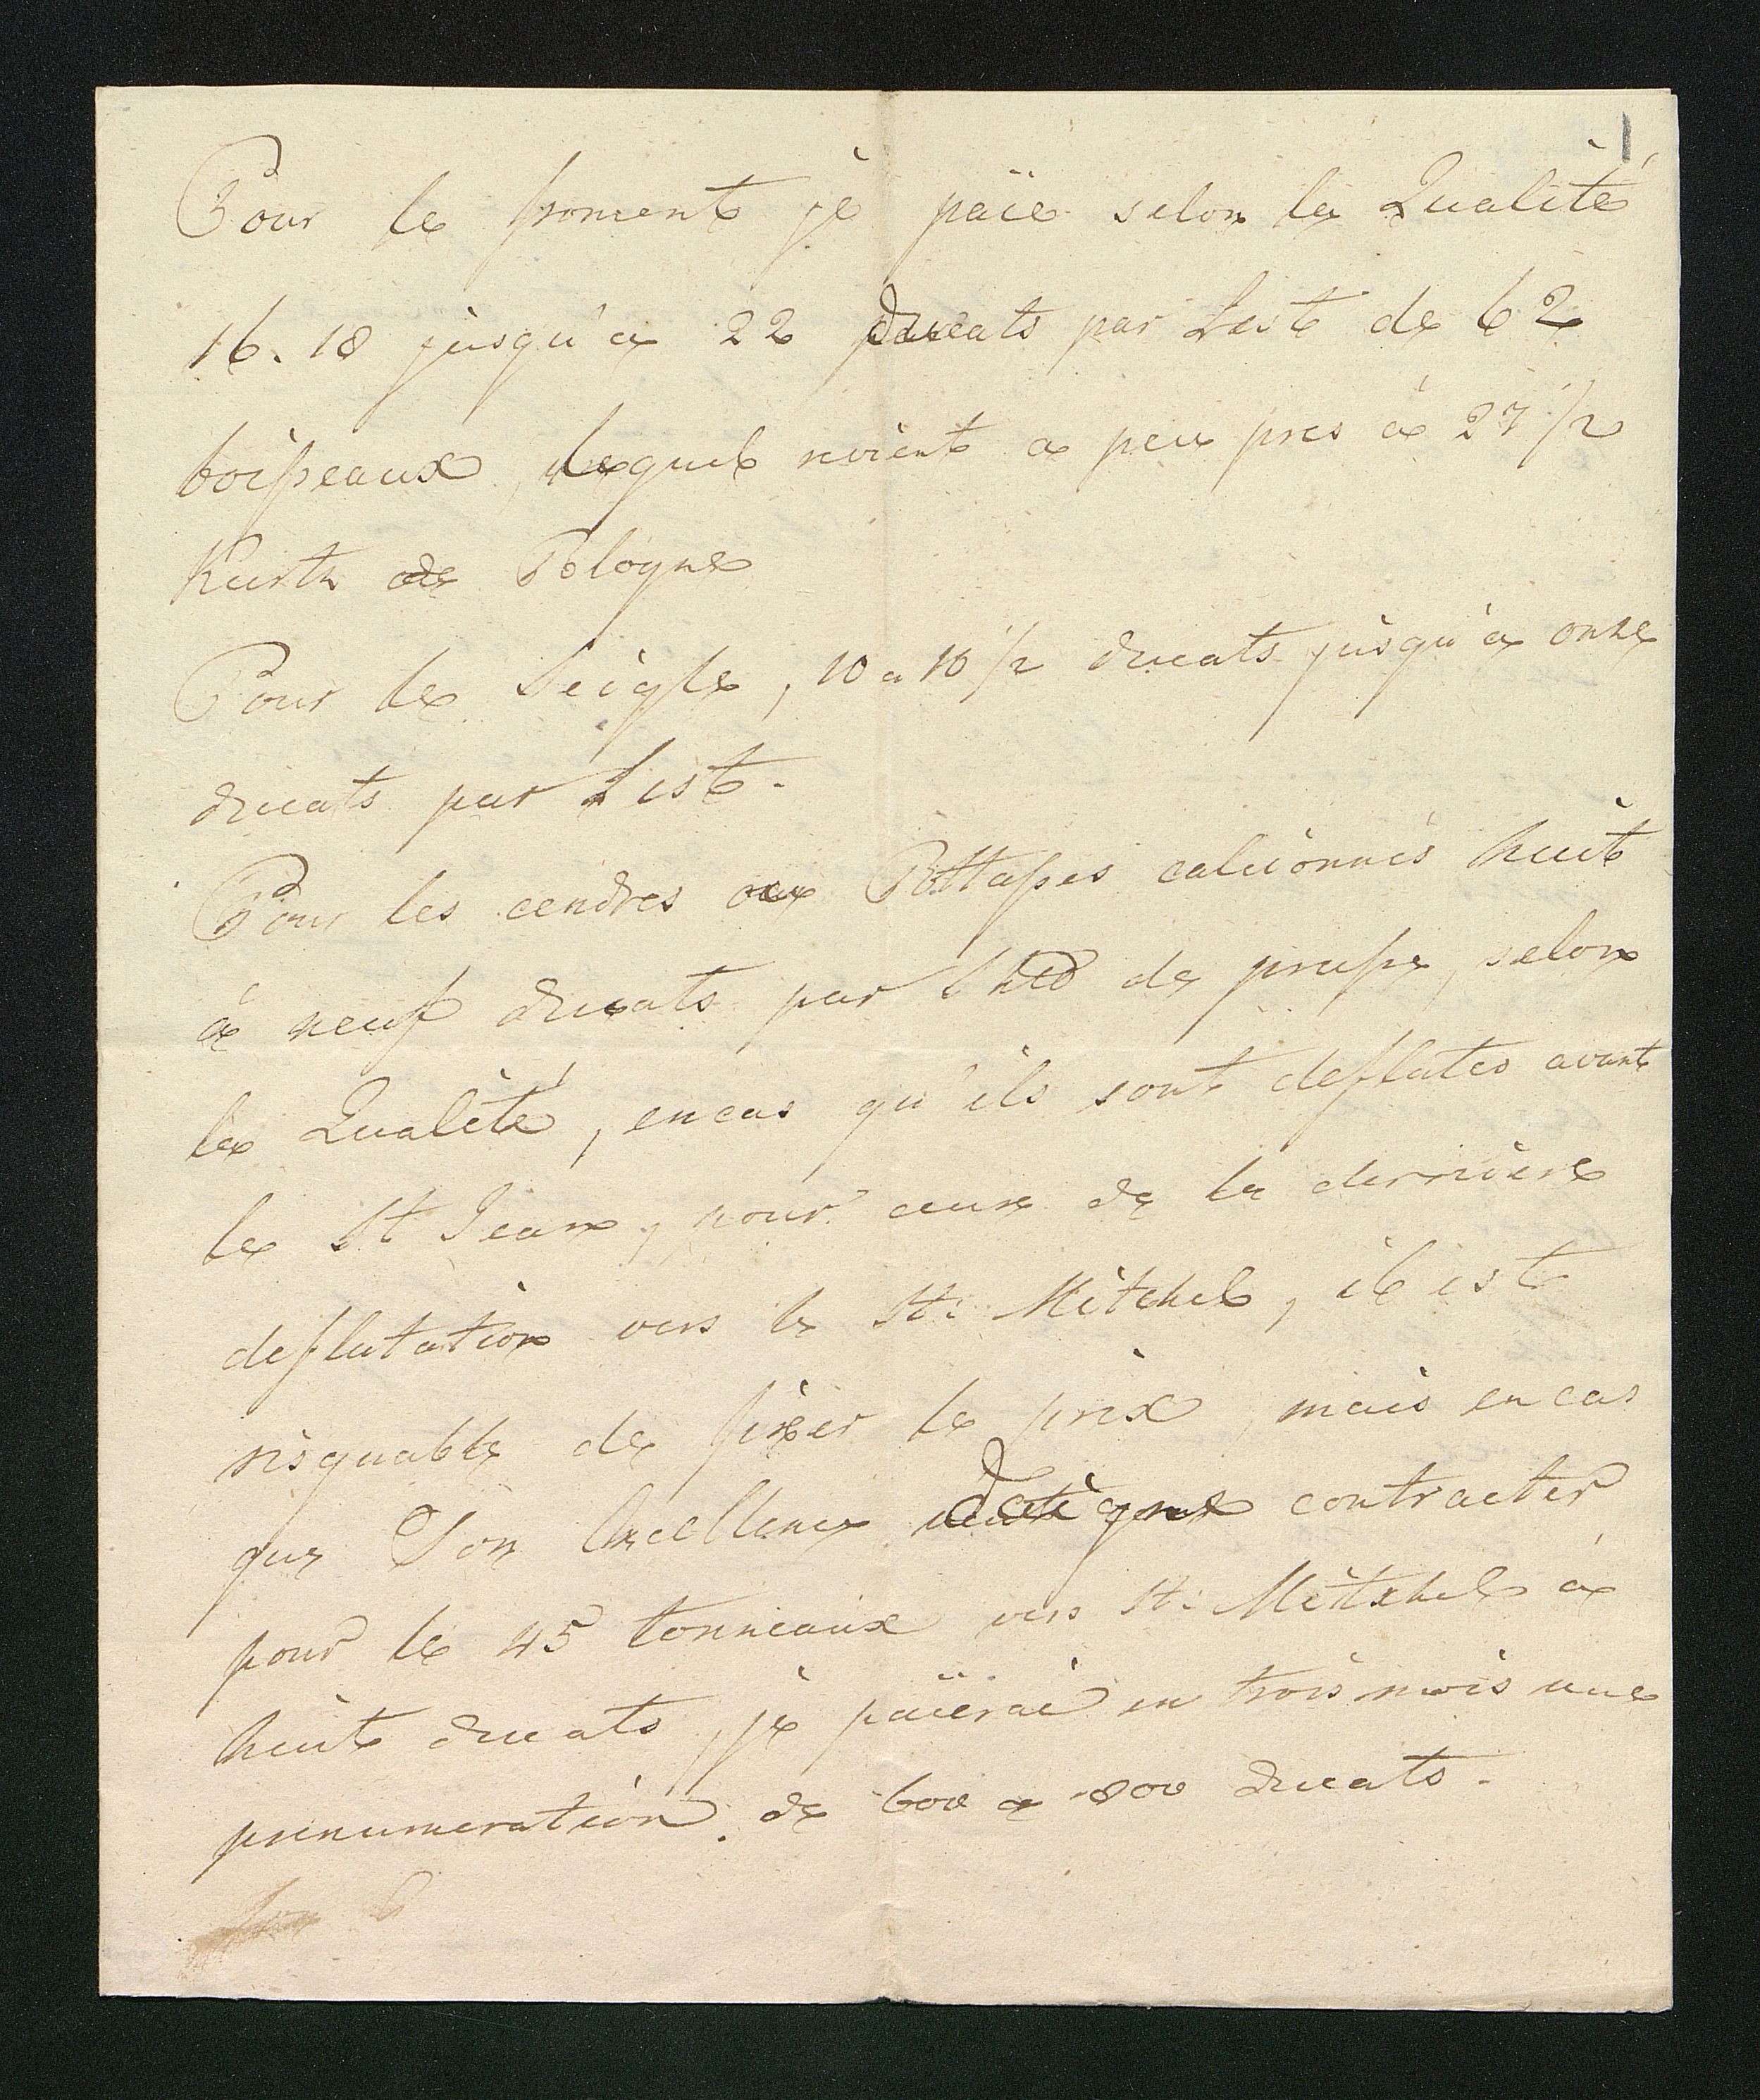 1
Pour le froment je païe selon la Qualité
16. 18 jusqu'a 22 ducats par Last de 62
boisseaux, lequel revient a peu pres à 27 1/2
Kurtz de Pologne
Pour le Seigle, 10 a 10 1/2 ducats jusqu'a onze
ducats par Last.
Pour les cendres ou Pottasses calcionnés huit
à neuf ducats par de prusse, selon
la Qualité, encas qu'ils sont deflutés avant
le St Jean, pour ceux de la derniere
deflutation vers le St: Mitchel, il est
risquable de fixer le prix, mais encas
que Son Excellence daigne contracter
pour le 45 tonneaux vers St: Mitchel à
huit ducats, je païerai en trois mois une
prenumeration de 600 a 800 ducats.